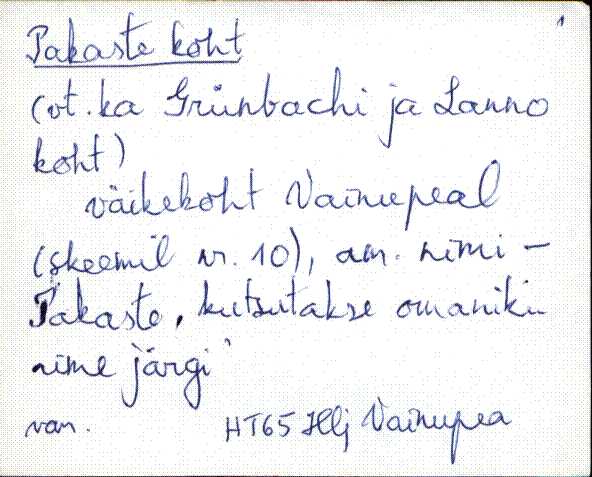 1
Pakaste koht
(vt. ka Grünbachi ja Lanno
koht)
väikekoht Vainupeal
(skeemil nr. 10), am. nimi -
Pakaste, kutsutakse omaniku
nime järgi
van. HT65 Hlj Vainupea